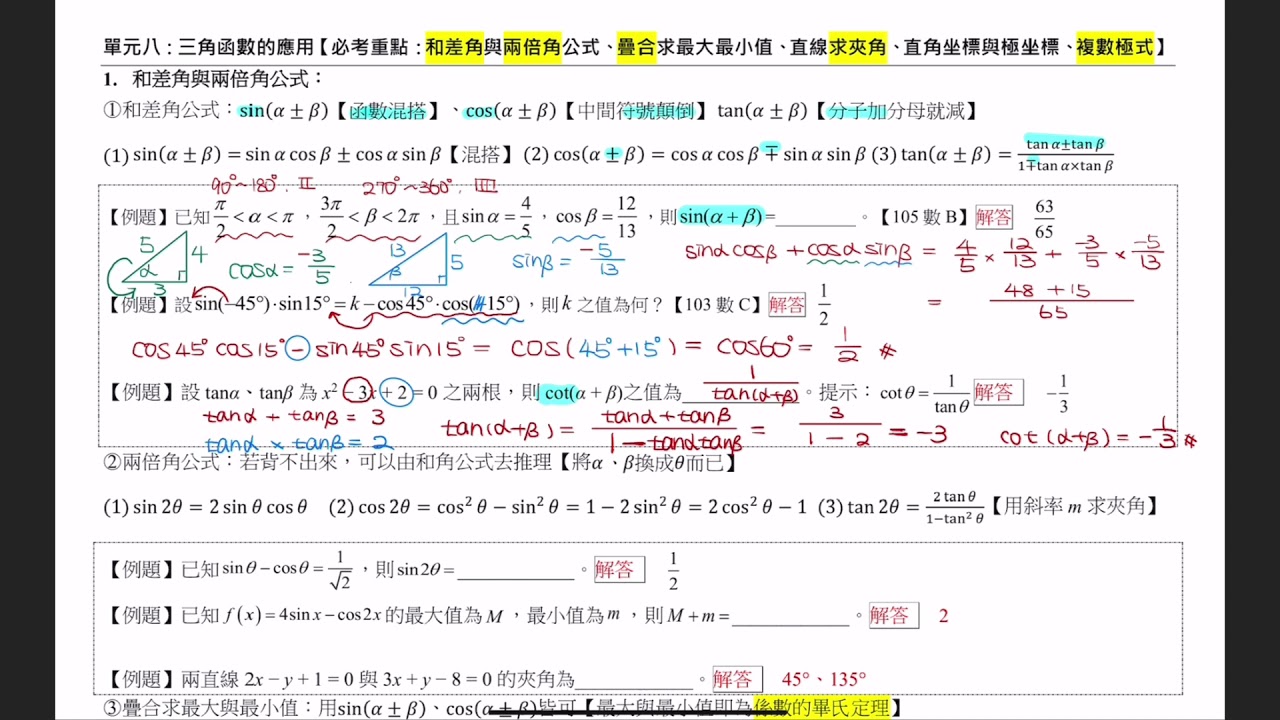 單元八：三角函數的應用【必考重點：和差角與兩倍角公式、疊合求最大最小值、直線求夾角、直角坐標與極坐標、複數極式】
1. 和差角與兩倍角公式：
①和差角公式：sin(α ± β)【函數混搭】、cos(α ± β)【中間符號顛倒】 tan(α ± β)【分子加分母就減】
(1) sin(α ± β) = sin α cos β ± cos α sin β【混搭】 (2) cos(α ± β) = cos α cos β ∓ sin α sin β (3) tan(α ± β) = (tan α ± tan β)/(1 ∓ tan α × tan β)
90°~180°. II 270°~360°. IIII
【例題】已知 π/2 < α < π ，3π/2 < β < 2π ，且 sin α = 4/5 ，cos β = 12/13 ，則 sin(α + β) = ________ 。【105 數 B】 解答 63/65
5 4 α 3 cosα = -3/5 13 5 β 12 sinβ = -5/13 sinα cosβ + cosα sinβ = 4/5 × 12/13 + -3/5 × -5/13
= (48 + 15)/65
【例題】設 sin(−45°)·sin15° = k − cos45°·cos(−15°)，則 k 之值為何？【103 數 C】 解答 1/2
cos45° cos15° − sin45° sin15° = cos(45°+15°) = cos60° = 1/2 #
【例題】設 tanα、tanβ 為 x² − 3x + 2 = 0 之兩根，則 cot(α + β)之值為 1/tan(α+β) 。提示：cot θ = 1/tan θ 解答 −1/3
tanα + tanβ = 3
tanα × tanβ = 2 tan(α+β) = (tanα + tanβ)/(1 − tanα tanβ) = 3/(1 − 2) = −3 cot(α+β) = −1/3 #
②兩倍角公式：若背不出來，可以由和角公式去推理【將α、β換成θ而已】
(1) sin 2θ = 2 sin θ cos θ (2) cos 2θ = cos² θ − sin² θ = 1 − 2 sin² θ = 2 cos² θ − 1 (3) tan 2θ = 2 tan θ/(1−tan² θ)【用斜率 m 求夾角】
【例題】已知 sin θ − cos θ = 1/√2 ，則 sin 2θ = ________ 。 解答 1/2
【例題】已知 f(x) = 4sin x − cos 2x 的最大值為 M ，最小值為 m ，則 M + m = ________ 。 解答 2
【例題】兩直線 2x − y + 1 = 0 與 3x + y − 8 = 0 的夾角為________ 。 解答 45°、135°
③疊合求最大與最小值：用sin(α ± β)、cos(α ± β)皆可【最大與最小值即為係數的畢氏定理】